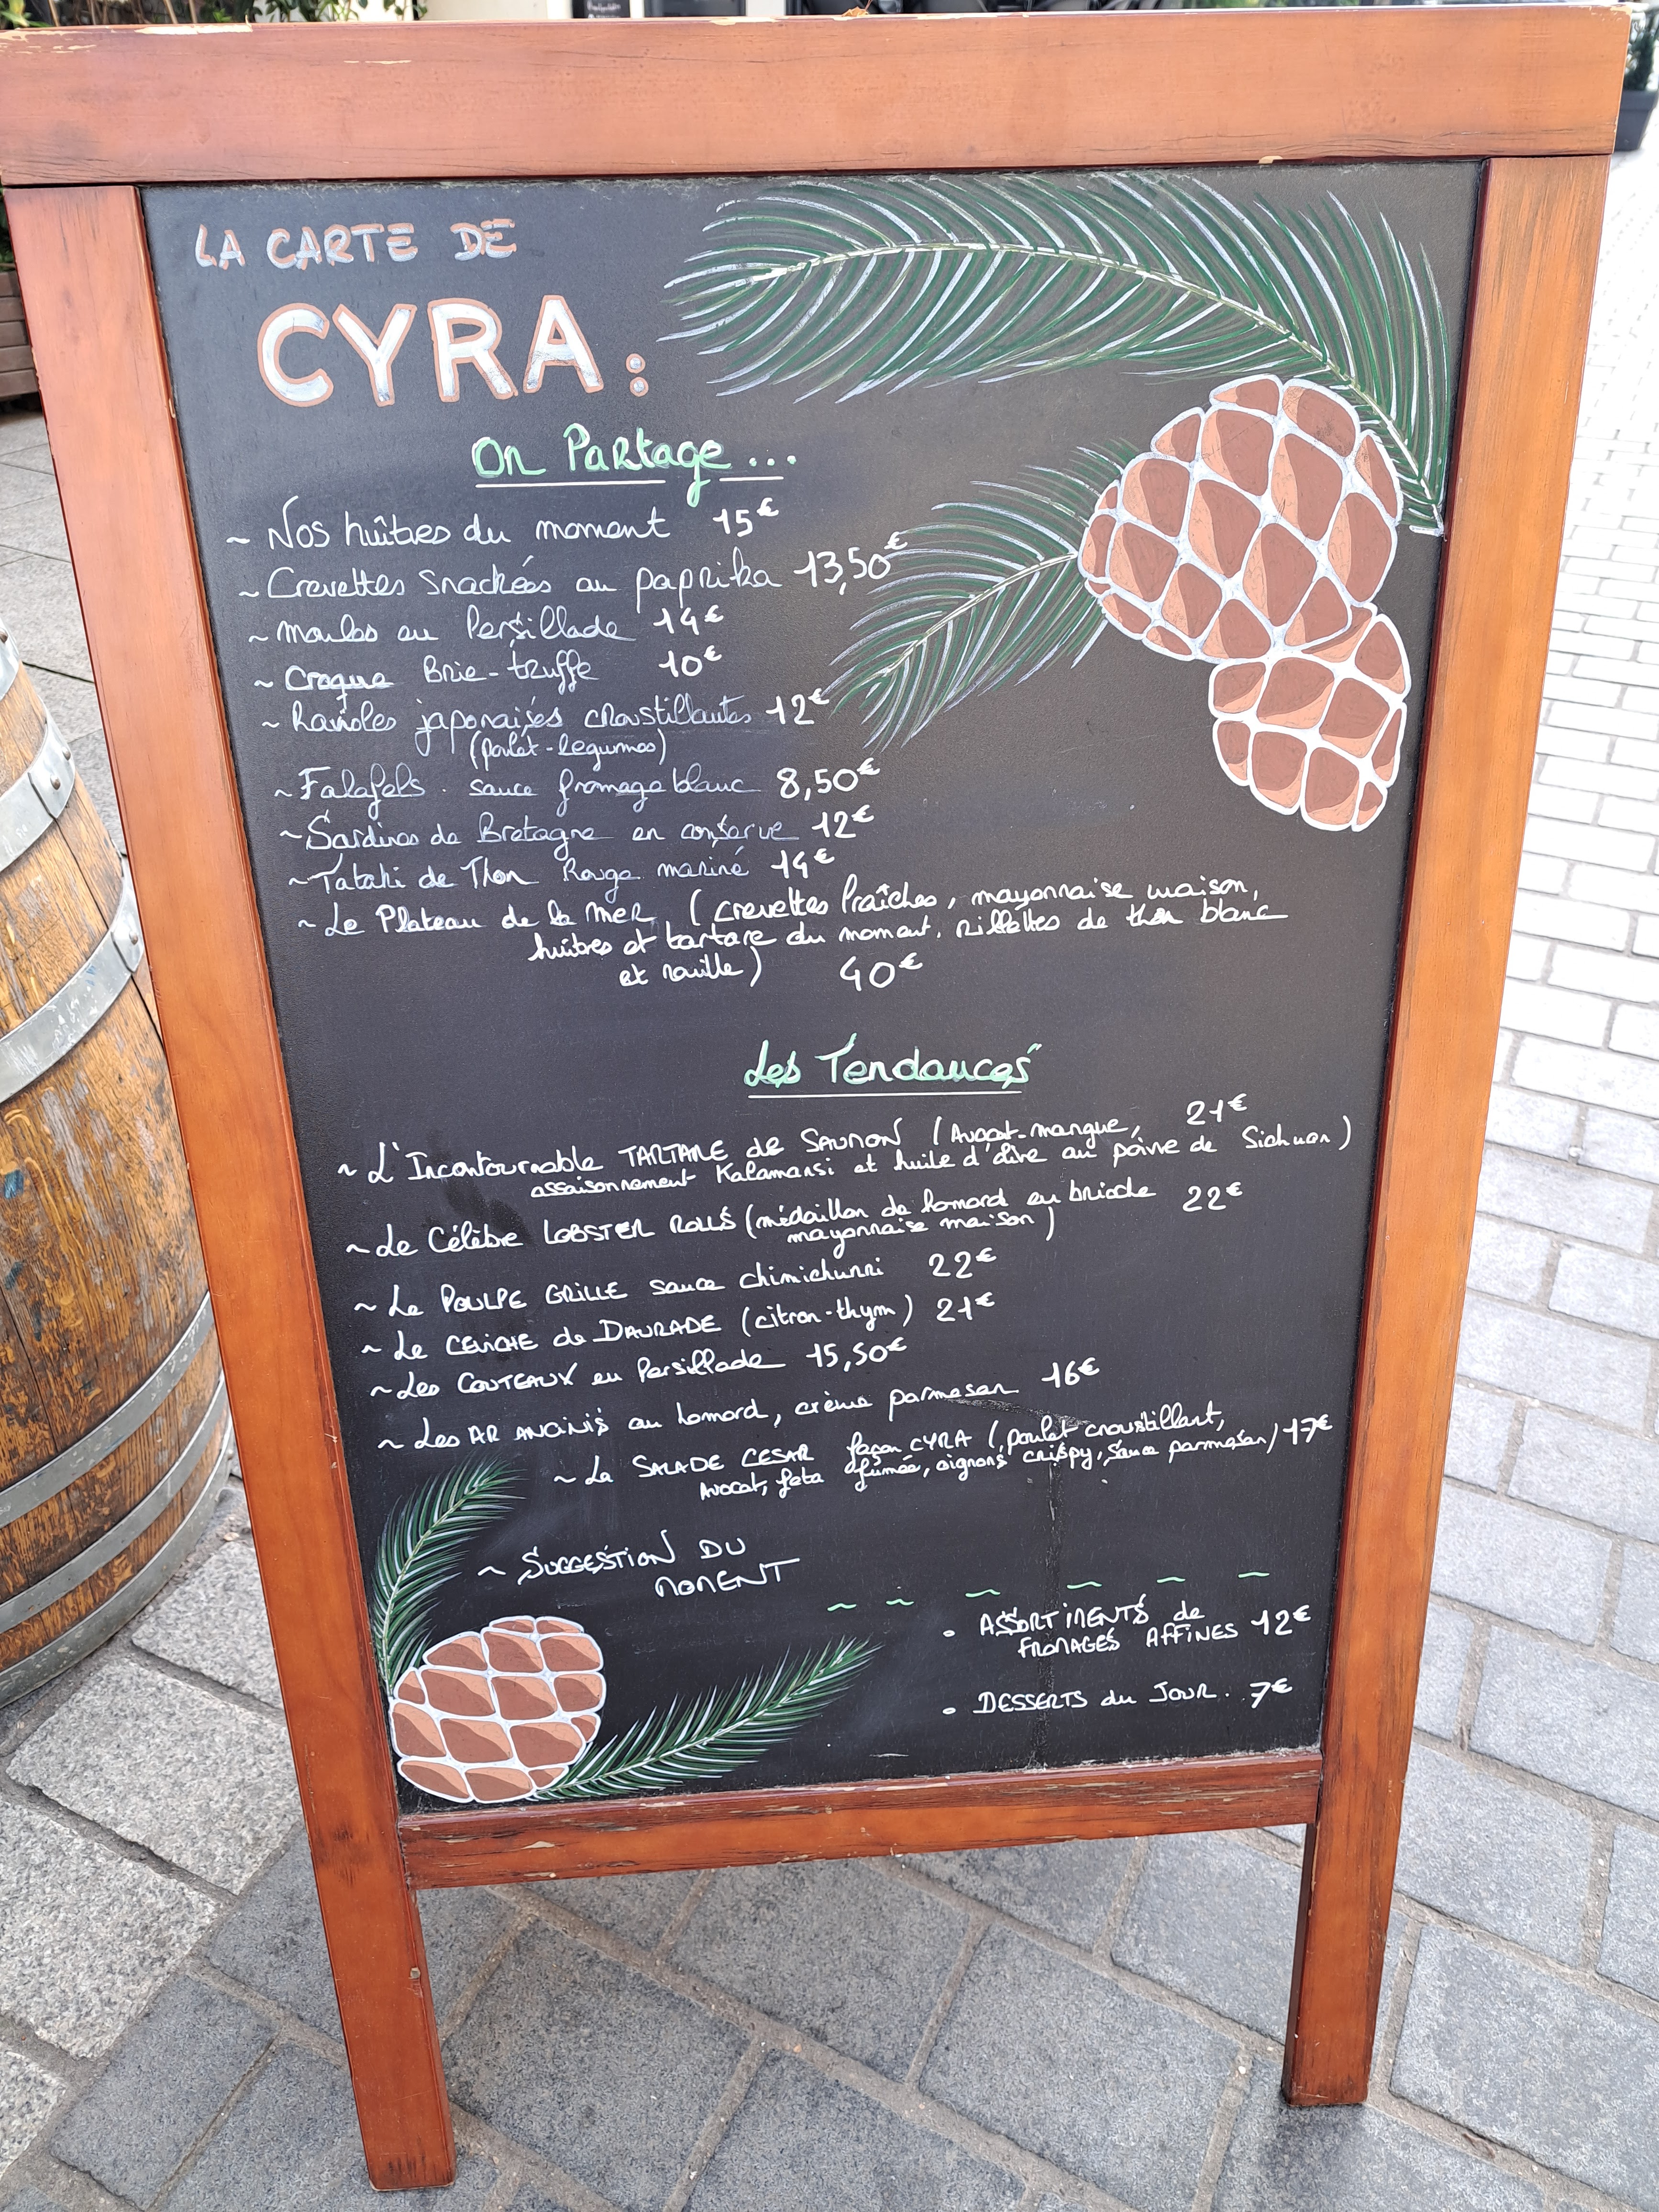 LA CARTE DE
CYRA :
On Partage...
~ Nos huîtres du moment 15€
~ Crevettes snackées au paprika 13,50€
~ moules en Persillade 14€
~ Croque Brie-truffe 10€
~ Ravioles japonaises croustillantes 12€
(poulet-legumes)
~ Falafels . sauce fromage blanc 8,50€
~ Sardines de Bretagne en conserve 12€
~ Tataki de Thon Rouge mariné 14€
~ Le Plateau de la MER (crevettes fraîches, mayonnaise maison,
huîtres et tartare du moment, rillettes de thon blanc
et rouille) 40€
Les Tendances
~ L'Incontournable TARTARE de SAUMON (Avocat-mangue, 21€
assaisonnement Kalamansi et huile d'olive au poivre de Sichuan)
~ Le Célèbre LOBSTER ROLLS (médaillon de homard en brioche 22€
mayonnaise maison)
~ Le POULPE GRILLE sauce chimichurri 22€
~ Le CEVICHE de DAURADE (citron-thym) 21€
~ Les COUTEAUX en Persillade 15,50€
~ Les ARANCINIS au homard, crème parmesan 16€
~ La SALADE CESAR façon CYRA (poulet croustillant,
Avocat, feta fumée, oignons crispy, sauce parmesan) 17€
~ SUGGESTION DU
MOMENT
• ASSORTIMENTS de
FROMAGES AFFINES 12€
• DESSERTS du JOUR. 7€